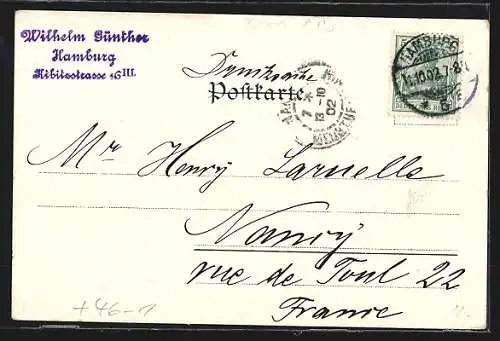 Wilhelm Günther
Hamburg
Kibitzstrasse 16 III.
Drucksache
Postkarte
HAMBURG
11.10.02.7-8N
7 *
13 -10
02
Mr Henry Laruelle
Nancy
rue de Toul 22
France
+46-11